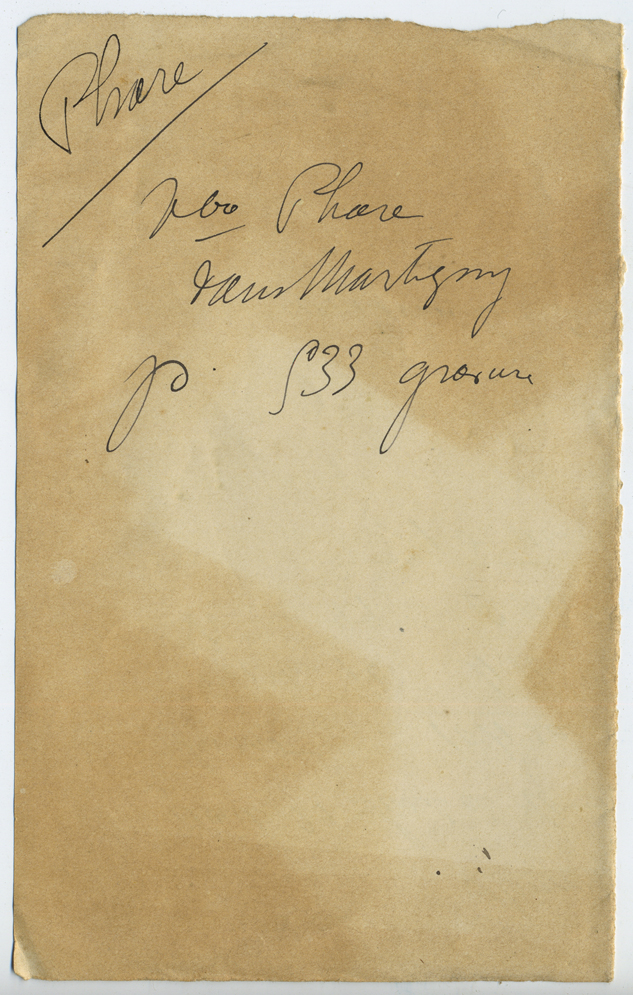 Phare
vbo Phare
dans Martigny
p. 533 gravure